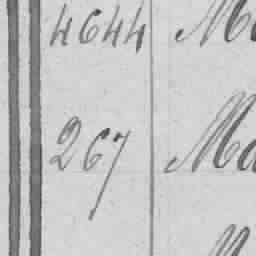 4644 Ma
267 Ma